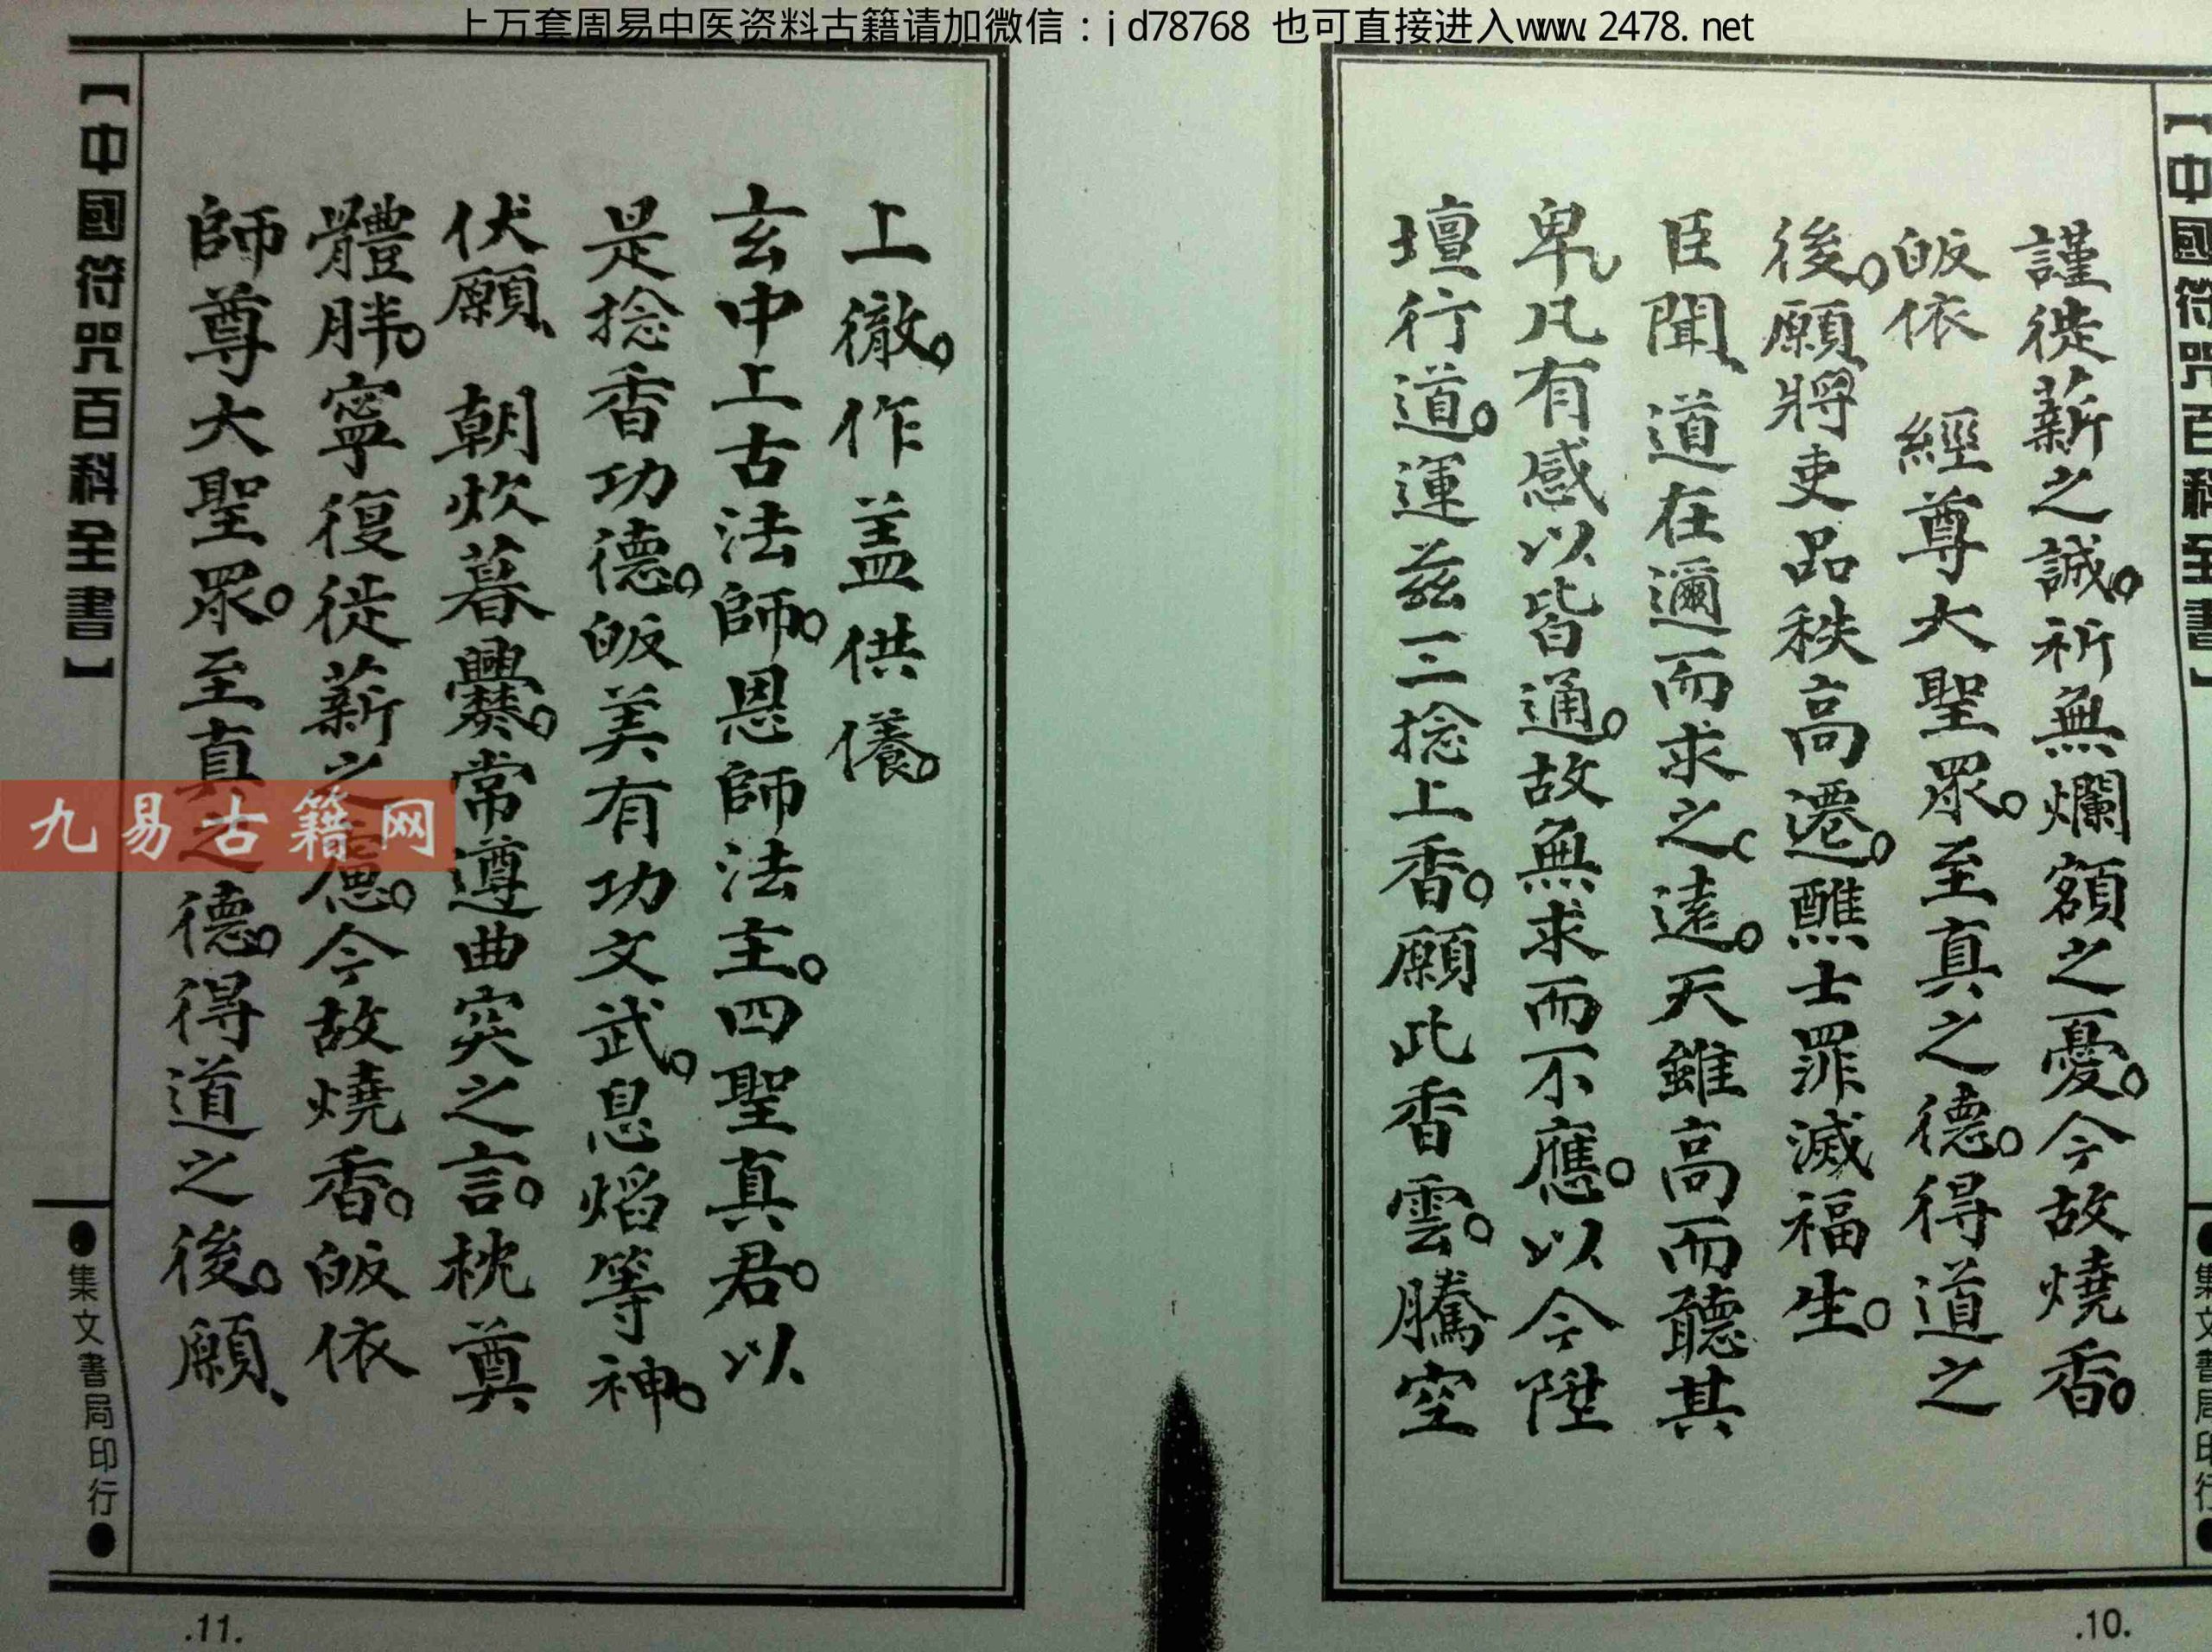 上万套周易中医资料古籍请加微信：jd78768 也可直接进入www.2478.net
【中國符咒百科全書】
謹徙薪之誠。祈無爛額之憂。今故燒香。
皈依 經尊大聖眾。至真之德。得道之
後。願、將吏品秩高遷。醮士罪滅福生。
臣聞、道在邇而求之遠。天雖高而聽其
卑。凡有感以皆通。故無求而不應。以今陞
壇行道。運茲三捻上香。願此香雲。騰空
●集文書局印行●
.10.
上徹。作蓋供儀。
玄中上古法師。恩師法主。四聖真君。以
是捻香功德。皈美有功文武。息焰等神。
伏願、朝炊暮爨。常遵曲突之言。枕奠
體胖。寧復徙薪之慮。今故燒香。皈依
師尊大聖眾。至真之德。得道之後。願、
【中國符咒百科全書】
●集文書局印行●
.11.
九易古籍网